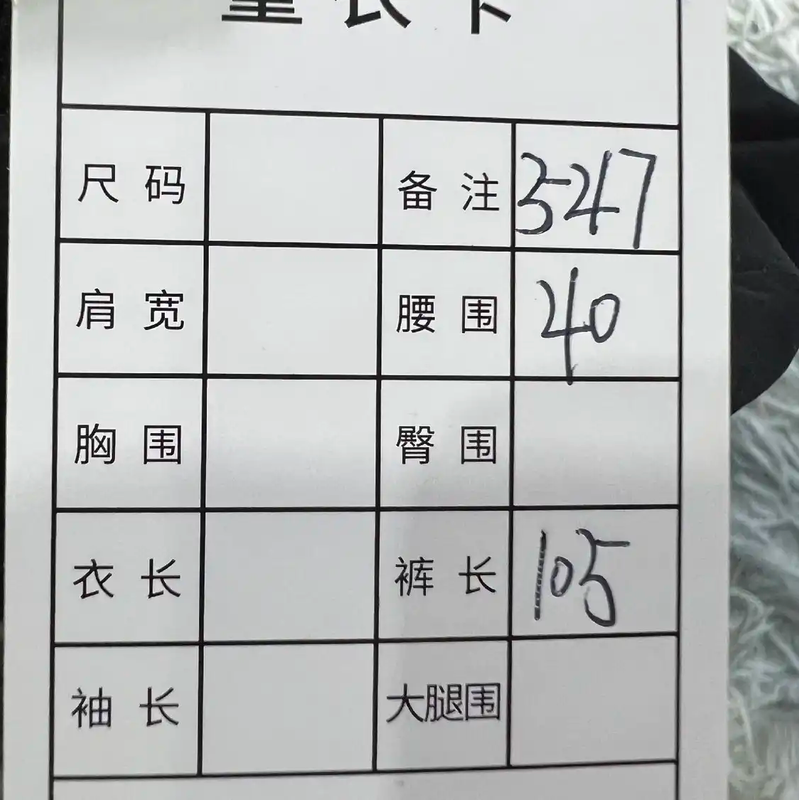 量衣卡
尺码 备注 547
肩宽 腰围 40
胸围 臀围
衣长 裤长 105
袖长 大腿围